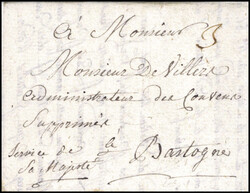 à Monsieur 3
Monsieur De Villers
administrateur des Couvens
Supprimés
Service de à
Sa Majesté Bastogne